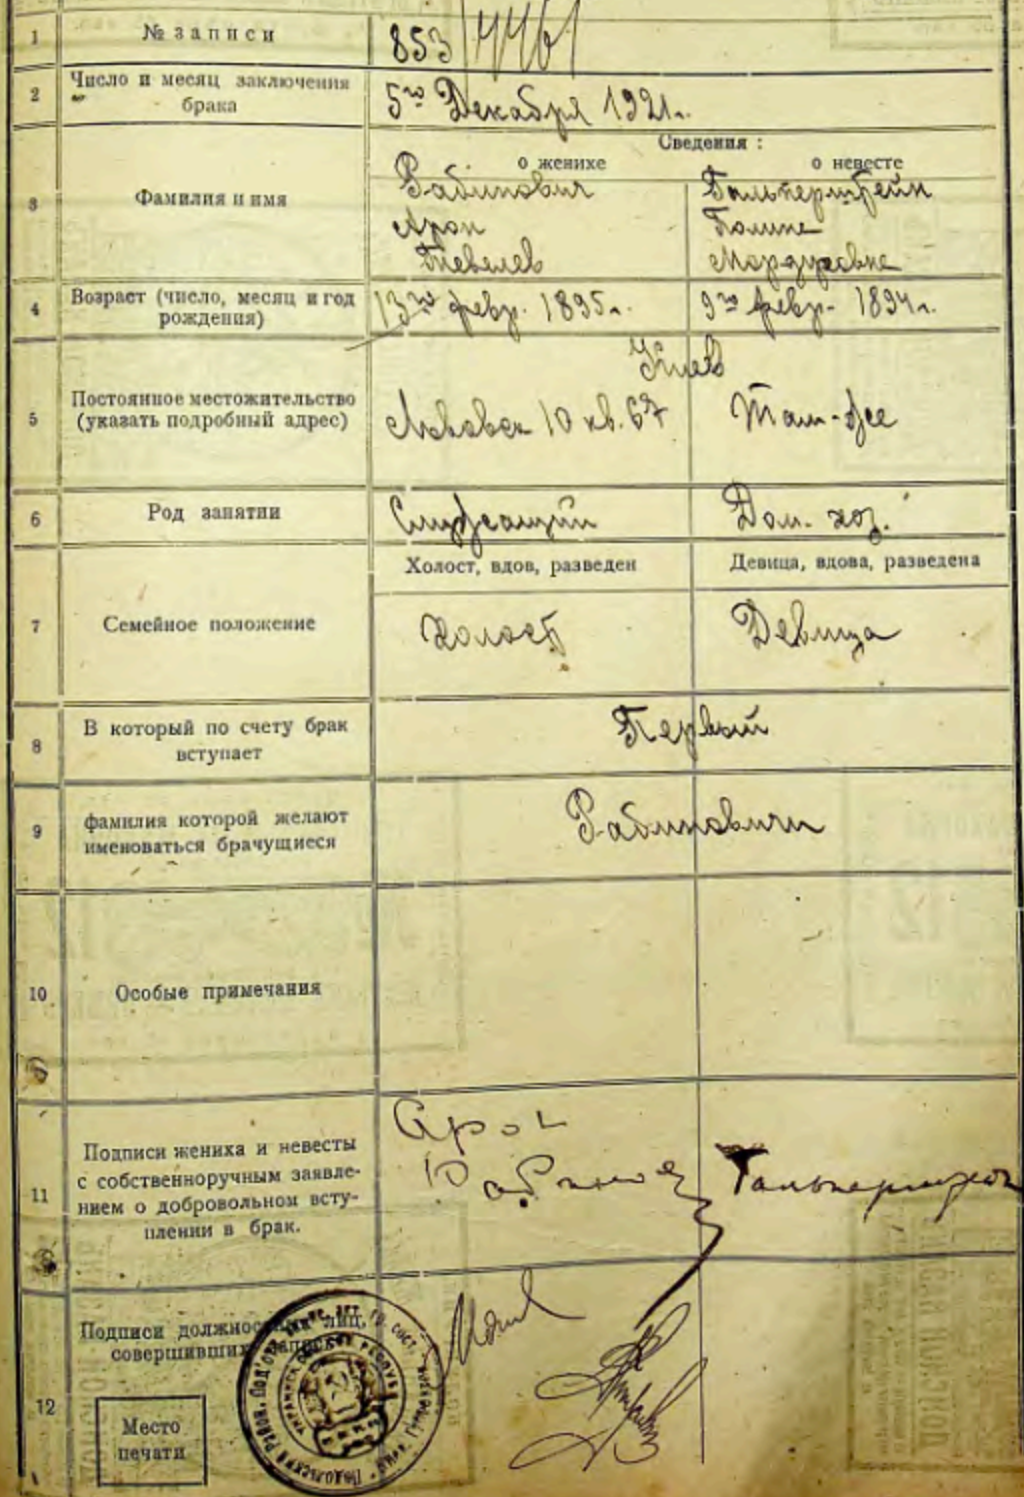 1 № записи 853/4461
2 Число и месяц заключения
брака
5го Декабря 1921г.
Сведения :
о женихе о невесте
3 Фамилия и имя
Рабинович Гальперштейн
Арон Полине
Тевелев Мордуховне
4 Возраст (число, месяц и год
рождения)
13го февр. 1895г. 9го февр. 1894г.
Киев
5 Постоянное местожительство
(указать подробный адрес)
10 кв. 67 Там-же
6 Род занятии Служащий Дом. хоз.
Холост, вдов, разведен Девица, вдова, разведена
7 Семейное положение Холост Девица
8 В который по счету брак
вступает
Первый
9 фамилия которой желают
именоваться брачущиеся
Рабиновичи
10 Особые примечания
11 Подписи жениха и невесты
с собственноручным заявле-
нием о добровольном всту-
плении в брак.
Арон
12 Подписи должностных лиц,
совершивших запись
Место
печати